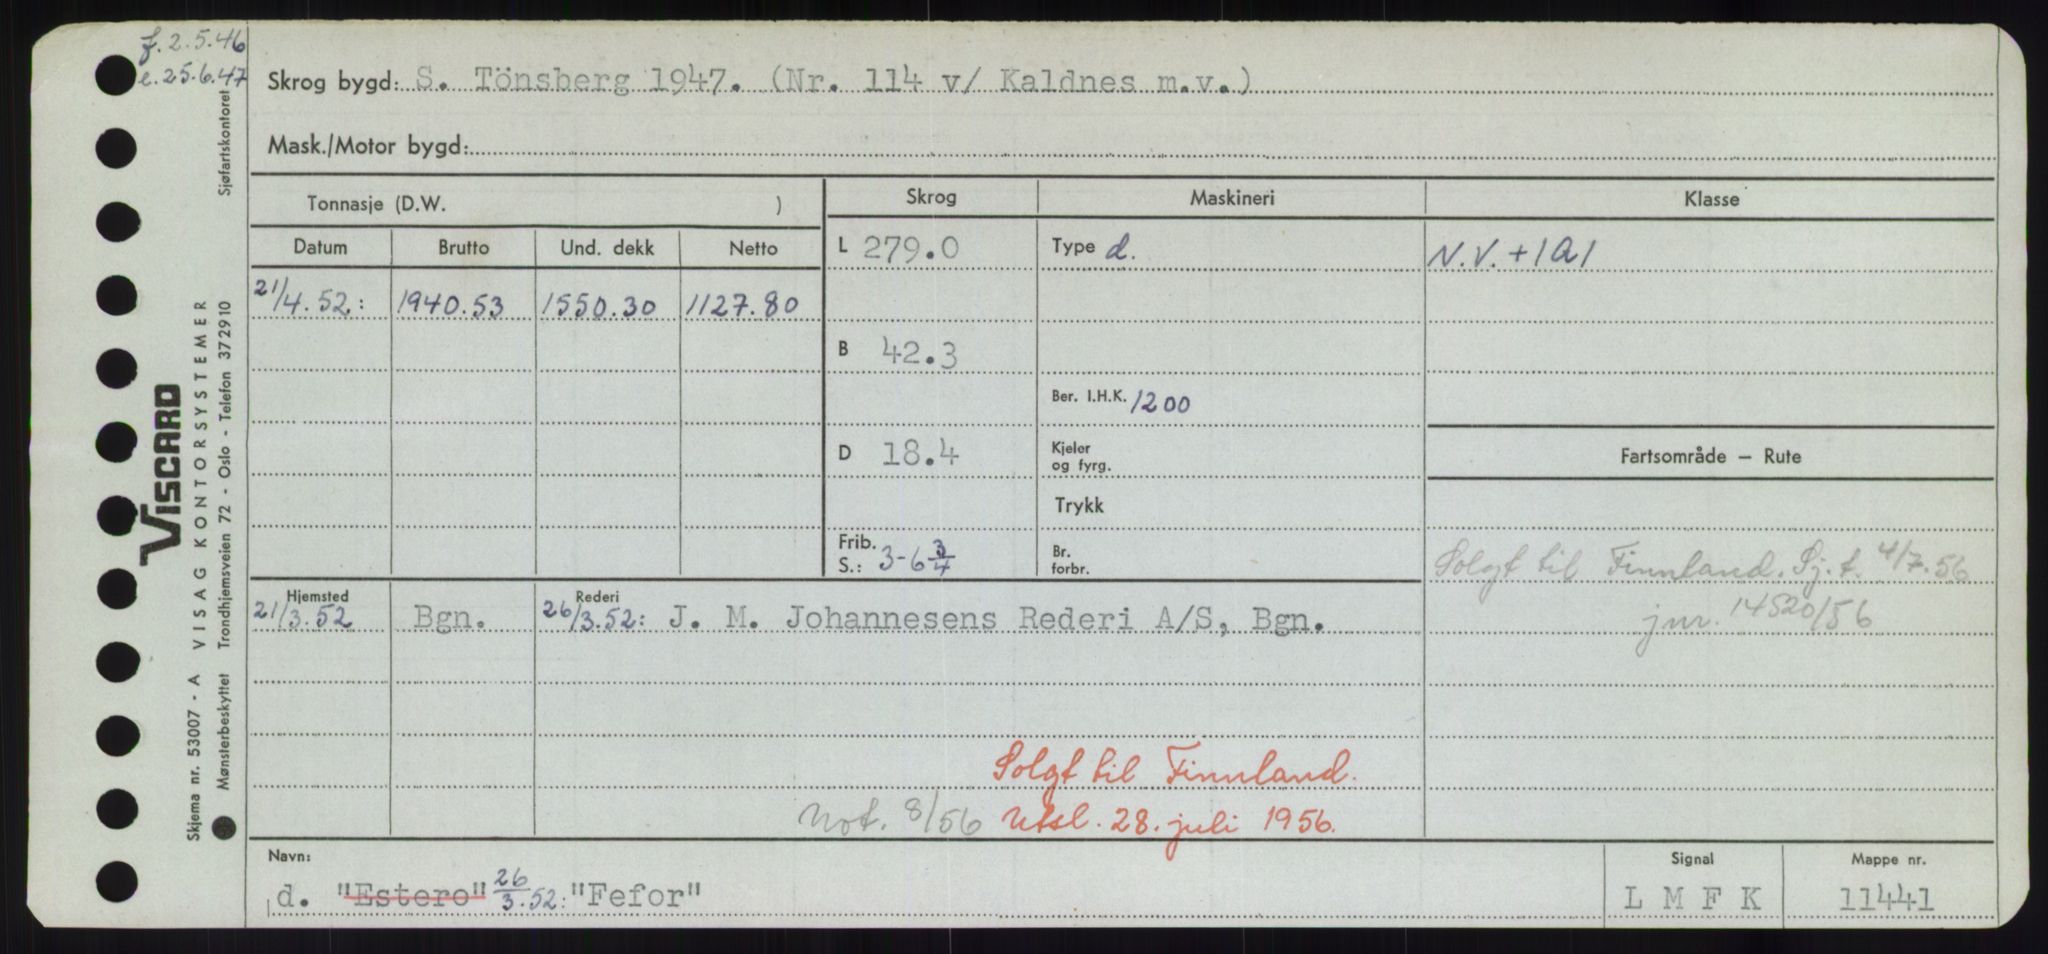 f. 2.5.46
e. 25.6.47
Skrog bygd: S. Tönsberg 1947. (Nr. 114 v/ Kaldnes m.v.)
Mask./Motor bygd:
Tonnasje (D.W. )
Skrog
Maskineri
Klasse
Datum Brutto Und. dekk Netto
L 279.0
Type d.
N.V. + 1A1
21/4.52: 1940.53 1550.30 1127.80
B 42.3
Ber. I.H.K. 1200
D 18.4
Kjeler og fyrg.
Fartsområde – Rute
Trykk
Frib. S.: 3-6 3/4
Br. forbr.
Solgt til Finnland. Sj.t. 4/7.56
jnr. 14520/56
Hjemsted
Rederi
21/3.52 Bgn. 26/3.52: J. M. Johannesens Rederi A/S, Bgn.
Solgt til Finnland.
Not. 8/56 Utsl. 28. juli 1956.
Navn:
Signal
Mappe nr.
d. "Estero" 26/3.52: "Fefor"
L M F K
11441
Skjema nr. 53007 - A VISAG KONTORSYSTEMER
Mønsterbeskyttet Trondhjemsveien 72 - Oslo - Telefon 372910
Sjøfartskontoret
VISCARD